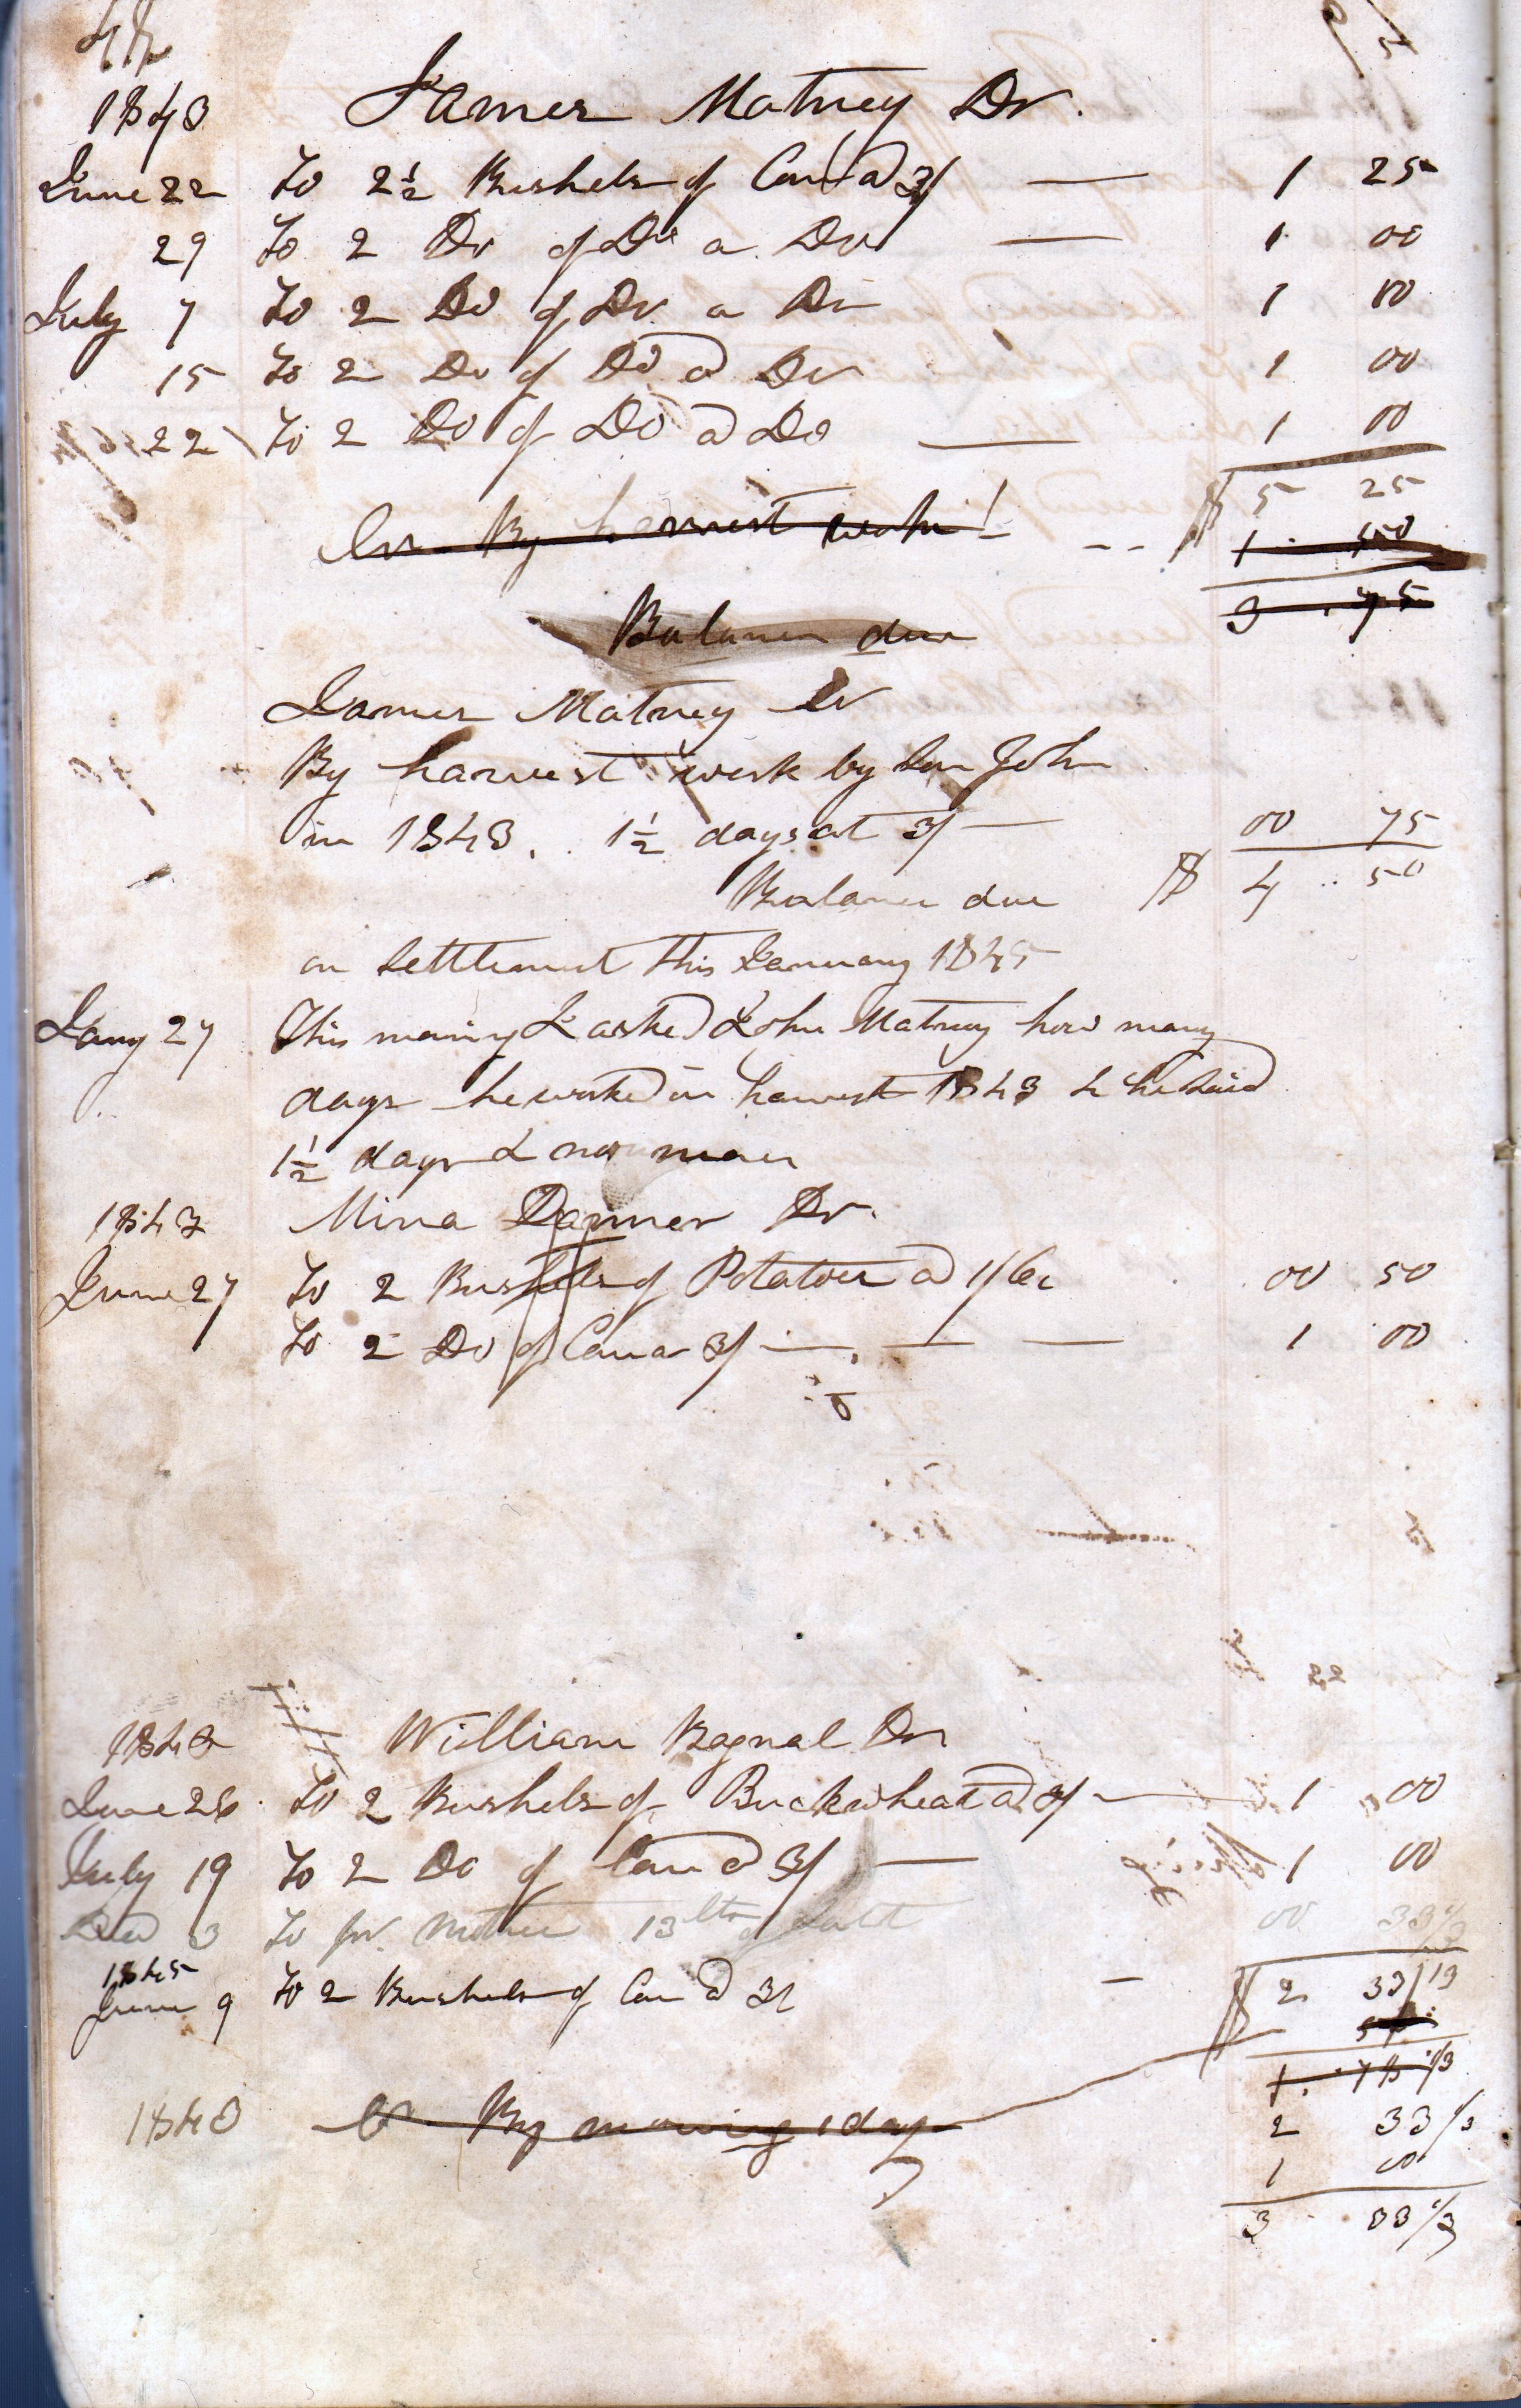 1843 James Matney Dr.
June 22 To 2½ Bushels of Corn @ 3/ — 1 25
29 To 2 Do of Do a Do — 1 00
July 7 To 2 Do of Do a Do 1 00
15 To 2 Do of Do @ Do 1 00
22 To 2 Do of Do @ Do — 1 00
$ 5 25
Cr. By harvest work -- $ 1 . 50
3 . 75
Balance due
James Matney Cr
By harvest work by son John
in 1843 . . 1½ days at 3/ — 00 75
Balance due $ 4 .. 50
on settlement this January 1845
Jany 27 This morning I asked John Matney how many
days he worked in harvest 1843 & he said
1½ days & no more
1843 Mina Danner Dr.
June 27 To 2 Bushels of Potatoes @ 1/6c 00 50
To 2 Do of Corn a 3/ — 1 00
1843 William Bagnal Dr
June 26 To 2 Bushels of Buckwheat @ 3/ — 1 00
July 19 To 2 Do of Corn @ 3/ — 1 00
3 To pr. Mother 13 lbs of Salt 00 33 1/3
1845
June 9 To 2 Bushels of Corn @ 3/ — $ 2 33 1/3
1 . 1/3
1843 Cr. By mowing 1 day
2 33 1/3
1 00
3 33 1/3